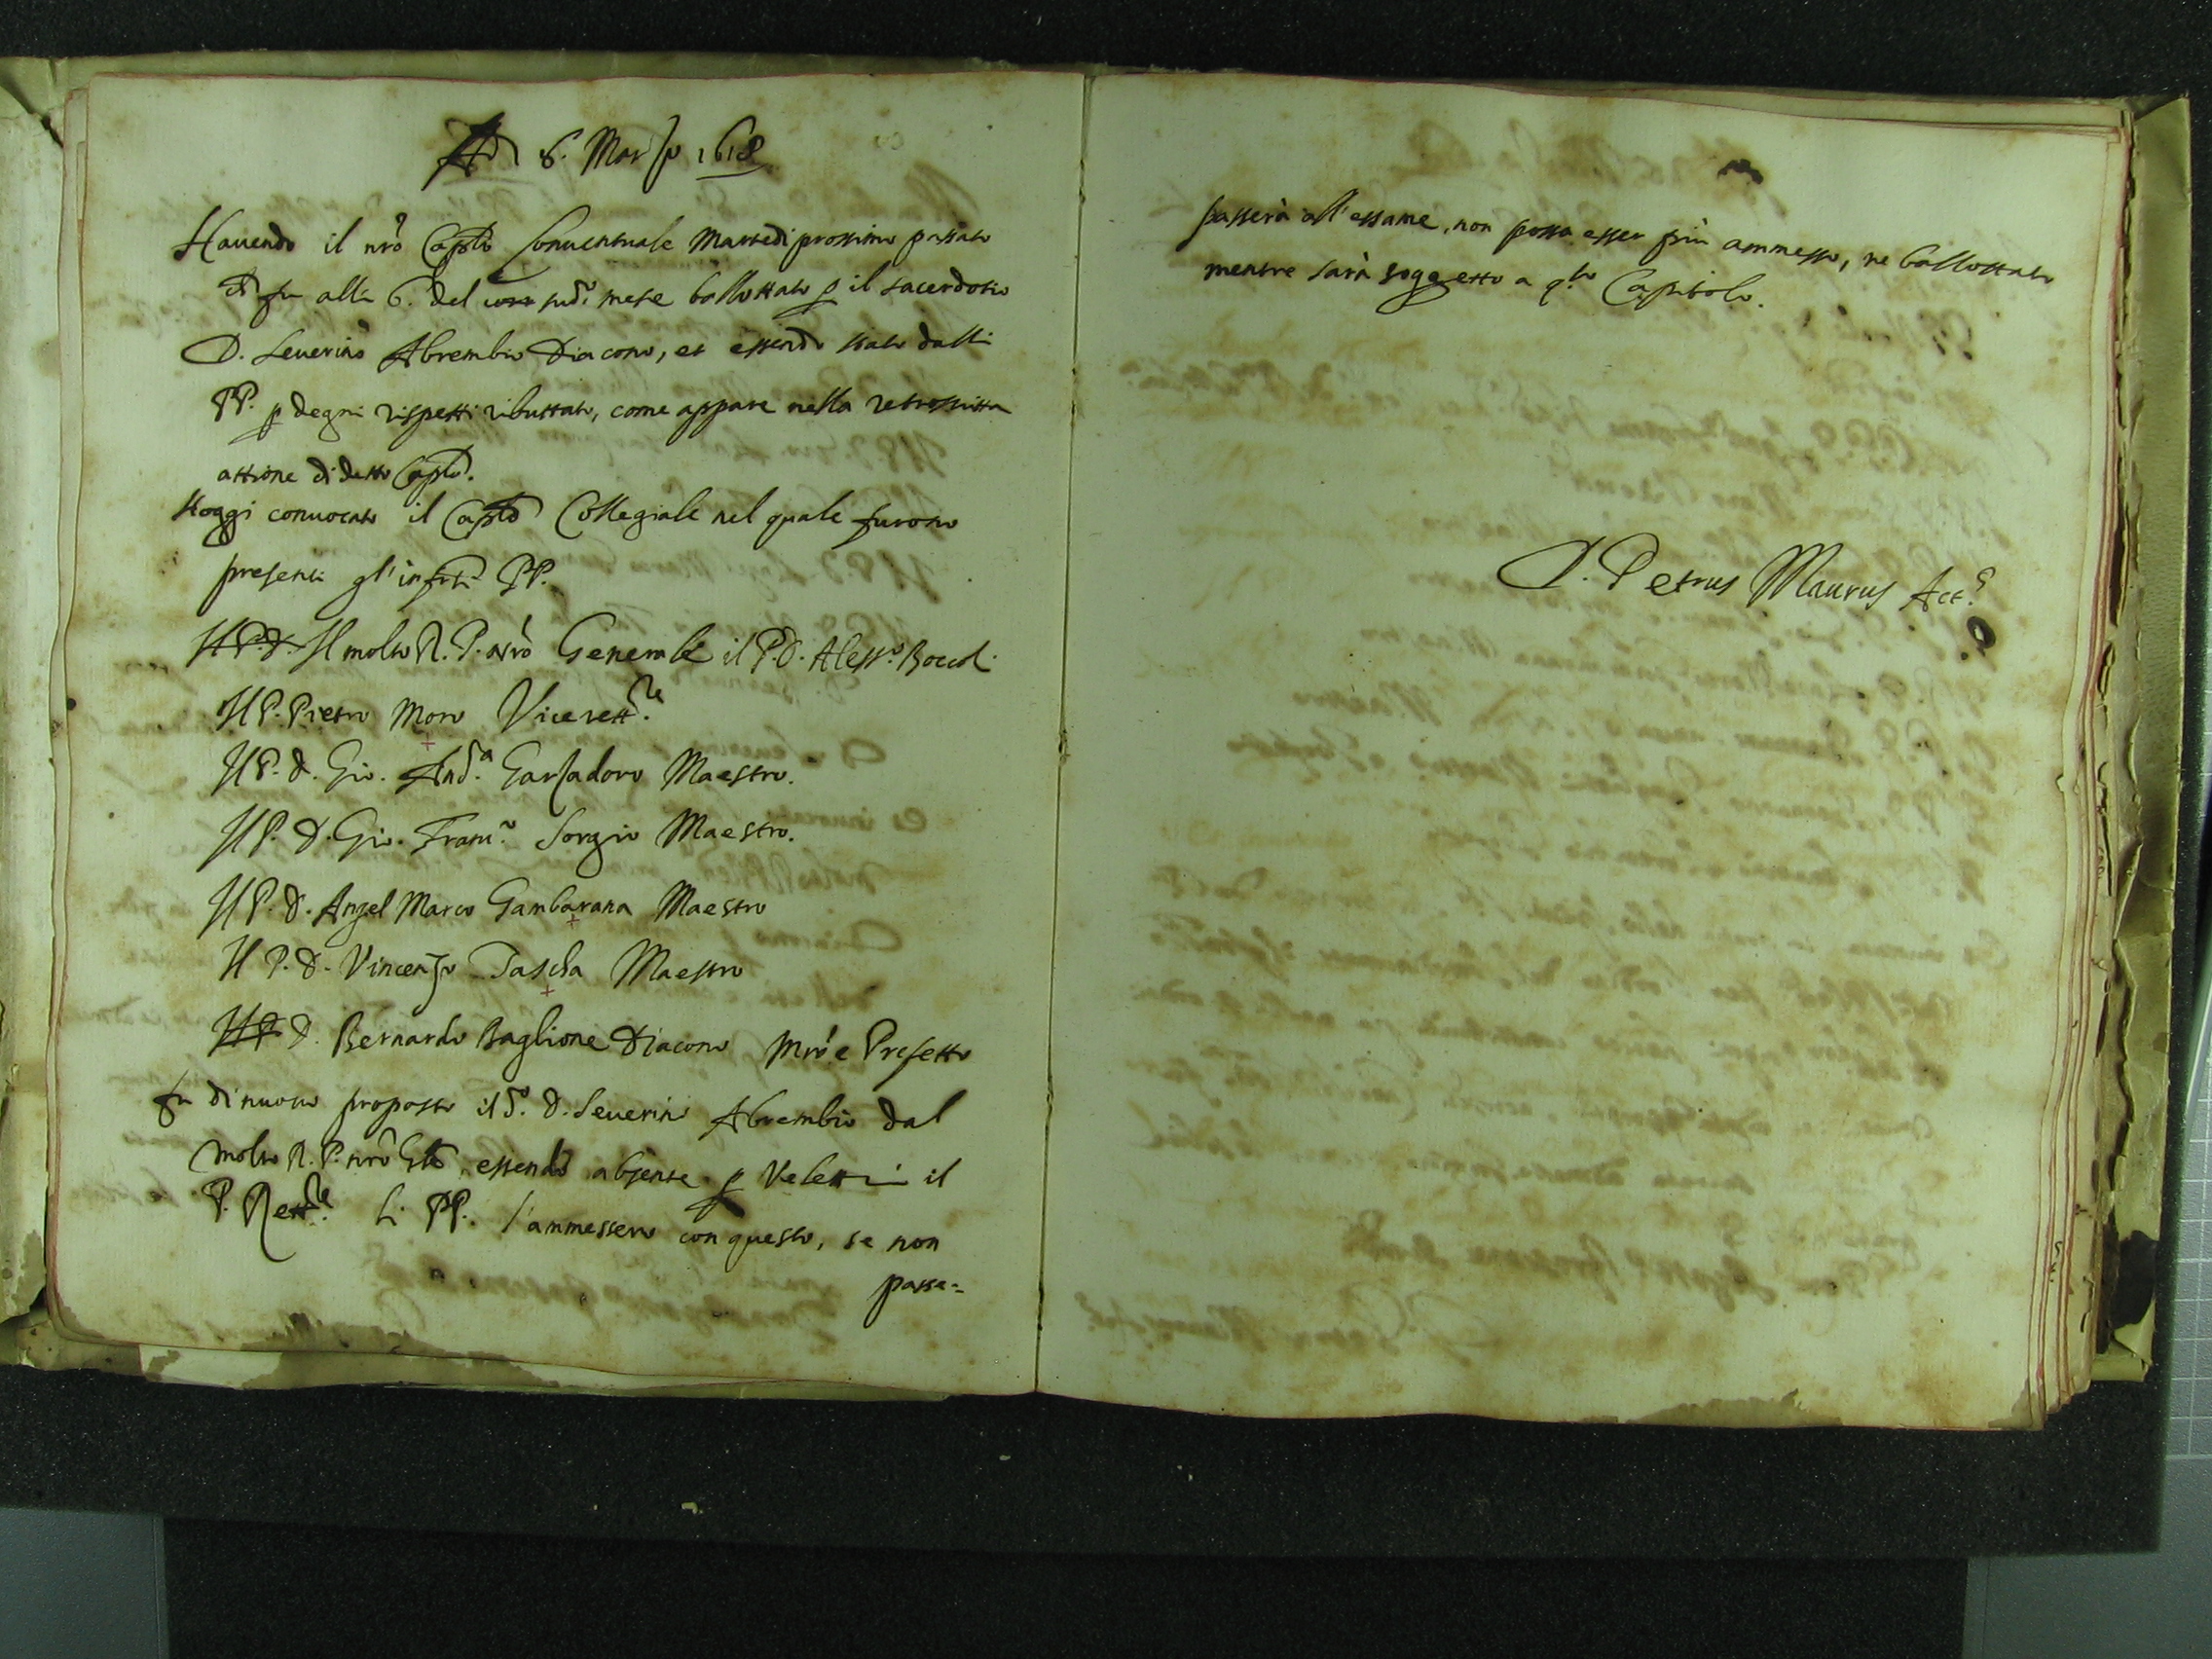 Adi 8. Marzo 1618
Havendo il nrõ Caplo Conventuale Martedi prossimo passato
che fu alli 6. del sudo mese ballottato p il sacerdotio
D. Severino Abrembio Diacono, et essendo stato dalli
PP. p degni rispetti ributtato, come appare nella retroscritta
attione di detto Caplo.
Hoggi convocato il Caplo Collegiale nel quale furono
presenti gl'infrti PP.
Il molto R. P. nrõ Generale il P. D. Alessro Boccoli
Il P. Pietro Moro Viverettre
Il P. D. Gio. Anda Garzadoro Maestro.
Il P. D. Gio. Franco Sorgio Maestro.
Il P. D. Angel Marco Gambarana Maestro
Il P. D. Vincenzo Tascha Maestro
D. Bernardo Baglione Diacono Mrõ e Prefetto
fu di nuovo proposto il do. D. Severino Abrembio dal
molto R. P. nrõ Gnle, essendo absente p Velettri il
P. Rettre. Li PP. l'ammessero con questo, se non
passe=
passerà all'essame, non possa esser più ammesso, ne ballottato
mentre sarà soggetto a qsto Capitolo.
D. Petrus Maurus Acts